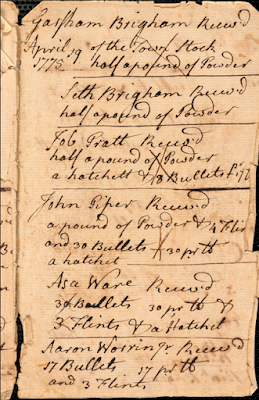 Gassham Brigham Recev'd
April 19 of the Town Stock
1775 half a pound of Powder
Seth Brigham Recev'd
half a pound of Powder
Job Pratt Recev'd
half a pound of Powder
a hatchett & 8 Bullets
John Piper Recev'd
a pound of Powder & 4 Flin
and 30 Bullets 30 pr ℔
a hatchet
Asa Ware Recev'd
30 Bullets 30 pr ℔ &
3 Flints & a Hatchet
Aaron Recev'd
17 Bullets 17 pr ℔
and 3 Flints